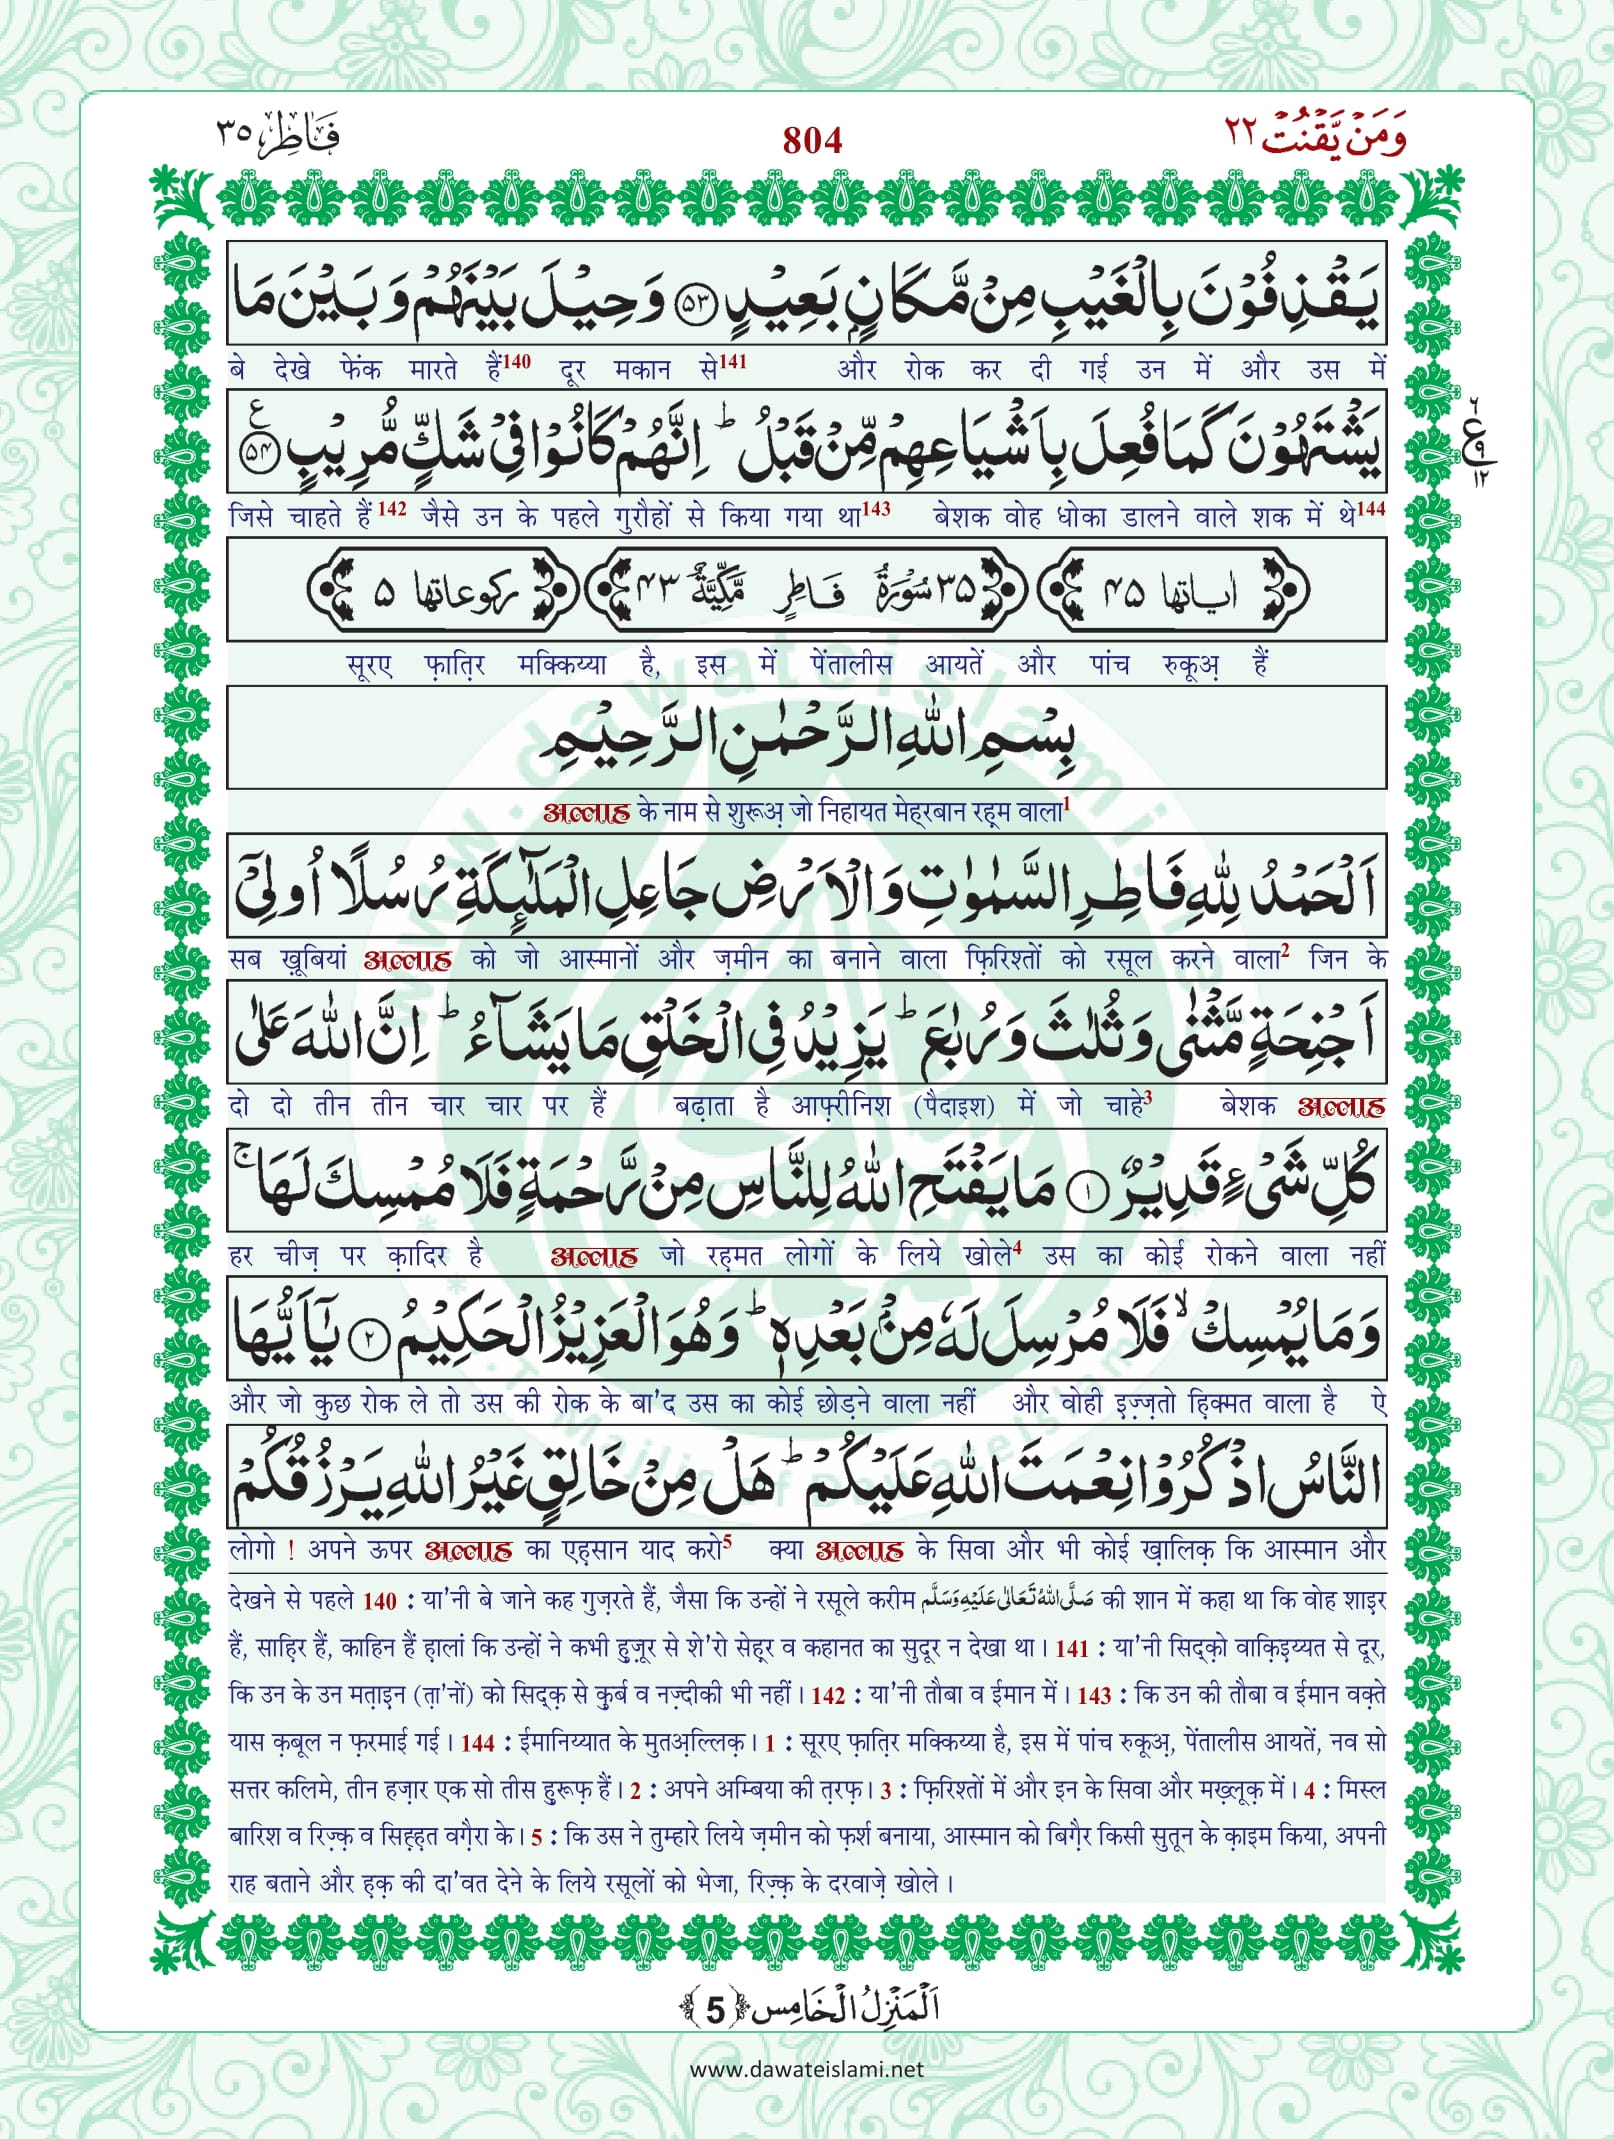 وَمَنْ يَّقْنُتْ ٢٢
804
فَاطِر ٣٥
يَقْذِفُوْنَ بِالْغَيْبِ مِنْ مَّكَانٍۭ بَعِيْدٍ ﴿۵۳﴾ وَحِيْلَ بَيْنَهُمْ وَبَيْنَ مَا
बे देखे फेंक मारते हैं140 दूर मकान से141 और रोक कर दी गई उन में और उस में
يَشْتَهُوْنَ كَمَا فُعِلَ بِاَشْيَاعِهِمْ مِّنْ قَبْلُ ؕ اِنَّهُمْ كَانُوْا فِیْ شَكٍّ مُّرِيْبٍ ﴿۵۴﴾ ع
٦ ع ٩ ١٢
जिसे चाहते हैं142 जैसे उन के पहले गुरौहों से किया गया था143 बेशक वोह धोका डालने वाले शक में थे144
اٰیاتها ۴۵
٣٥ سُوْرَةُ فَاطِرٍ مَّكِّيَّةٌ ۴۳
رکوعاتها ۵
सूरए फ़ात़िर मक्किय्या है, इस में पेंतालीस आयतें और पांच रुकूअ़ हैं
بِسْمِ اللّٰهِ الرَّحْمٰنِ الرَّحِيْمِ
अल्लाह के नाम से शुरूअ़ जो निहायत मेह्रबान रह़्म वाला1
اَلْحَمْدُ لِلّٰهِ فَاطِرِ السَّمٰوٰتِ وَالْاَرْضِ جَاعِلِ الْمَلٰٓئِكَةِ رُسُلًا اُولِیْۤ
सब ख़ूबियां अल्लाह को जो आस्मानों और ज़मीन का बनाने वाला फ़िरिश्तों को रसूल करने वाला2 जिन के
اَجْنِحَةٍ مَّثْنٰى وَثُلٰثَ وَرُبٰعَ ؕ يَزِيْدُ فِی الْخَلْقِ مَا يَشَآءُ ؕ اِنَّ اللّٰهَ عَلٰى
दो दो तीन तीन चार चार पर हैं बढ़ाता है आफ़्रीनिश (पैदाइश) में जो चाहे3 बेशक अल्लाह
كُلِّ شَیْءٍ قَدِيْرٌ ﴿۱﴾ مَا يَفْتَحِ اللّٰهُ لِلنَّاسِ مِنْ رَّحْمَةٍ فَلَا مُمْسِكَ لَهَا ۚ
हर चीज़ पर क़ादिर है अल्लाह जो रह़मत लोगों के लिये खोले4 उस का कोई रोकने वाला नहीं
وَمَا يُمْسِكْ ۙ فَلَا مُرْسِلَ لَهٗ مِنْۢ بَعْدِهٖ ؕ وَهُوَ الْعَزِيْزُ الْحَكِيْمُ ﴿۲﴾ يٰۤاَيُّهَا
और जो कुछ रोक ले तो उस की रोक के बा'द उस का कोई छोड़ने वाला नहीं और वोही इ़ज़्ज़तो ह़िक्मत वाला है ऐ
النَّاسُ اذْكُرُوْا نِعْمَتَ اللّٰهِ عَلَيْكُمْ ؕ هَلْ مِنْ خَالِقٍ غَيْرُ اللّٰهِ يَرْزُقُكُمْ
लोगो ! अपने ऊपर अल्लाह का एह़सान याद करो5 क्या अल्लाह के सिवा और भी कोई ख़ालिक़ कि आस्मान और
देखने से पहले 140 : या'नी बे जाने कह गुज़रते हैं, जैसा कि उन्हों ने रसूले करीम صَلَّى اللهُ تَعَالٰى عَلَيْهِ وَسَلَّم की शान में कहा था कि वोह शाइ़र
हैं, साह़िर हैं, काहिन हैं ह़ालां कि उन्हों ने कभी हु़ज़ूर से शे'रो सेह़्र व कहानत का सुदूर न देखा था। 141 : या'नी सिद्क़ो वाक़िइ़य्यत से दूर,
कि उन के उन मत़ाइन (त़ा'नों) को सिद्क़ से क़ुर्ब व नज़्दीकी भी नहीं। 142 : या'नी तौबा व ईमान में। 143 : कि उन की तौबा व ईमान वक़्ते
यास क़बूल न फ़रमाई गई। 144 : ईमानिय्यात के मुतअ़ल्लिक़। 1 : सूरए फ़ात़िर मक्किय्या है, इस में पांच रुकूअ़, पेंतालीस आयतें, नव सो
सत्तर कलिमे, तीन हज़ार एक सो तीस हु़रूफ़ हैं। 2 : अपने अम्बिया की त़रफ़। 3 : फ़िरिश्तों में और इन के सिवा और मख़्लूक़ में। 4 : मिस्ल
बारिश व रिज़्क़ व सिह़्ह़त वग़ैरा के। 5 : कि उस ने तुम्हारे लिये ज़मीन को फ़र्श बनाया, आस्मान को बिग़ैर किसी सुतून के क़ाइम किया, अपनी
राह बताने और ह़क़ की दा'वत देने के लिये रसूलों को भेजा, रिज़्क़ के दरवाज़े खोले।
اَلْمَنْزِلُ الْخَامِس ﴿5﴾
www.dawateislami.net